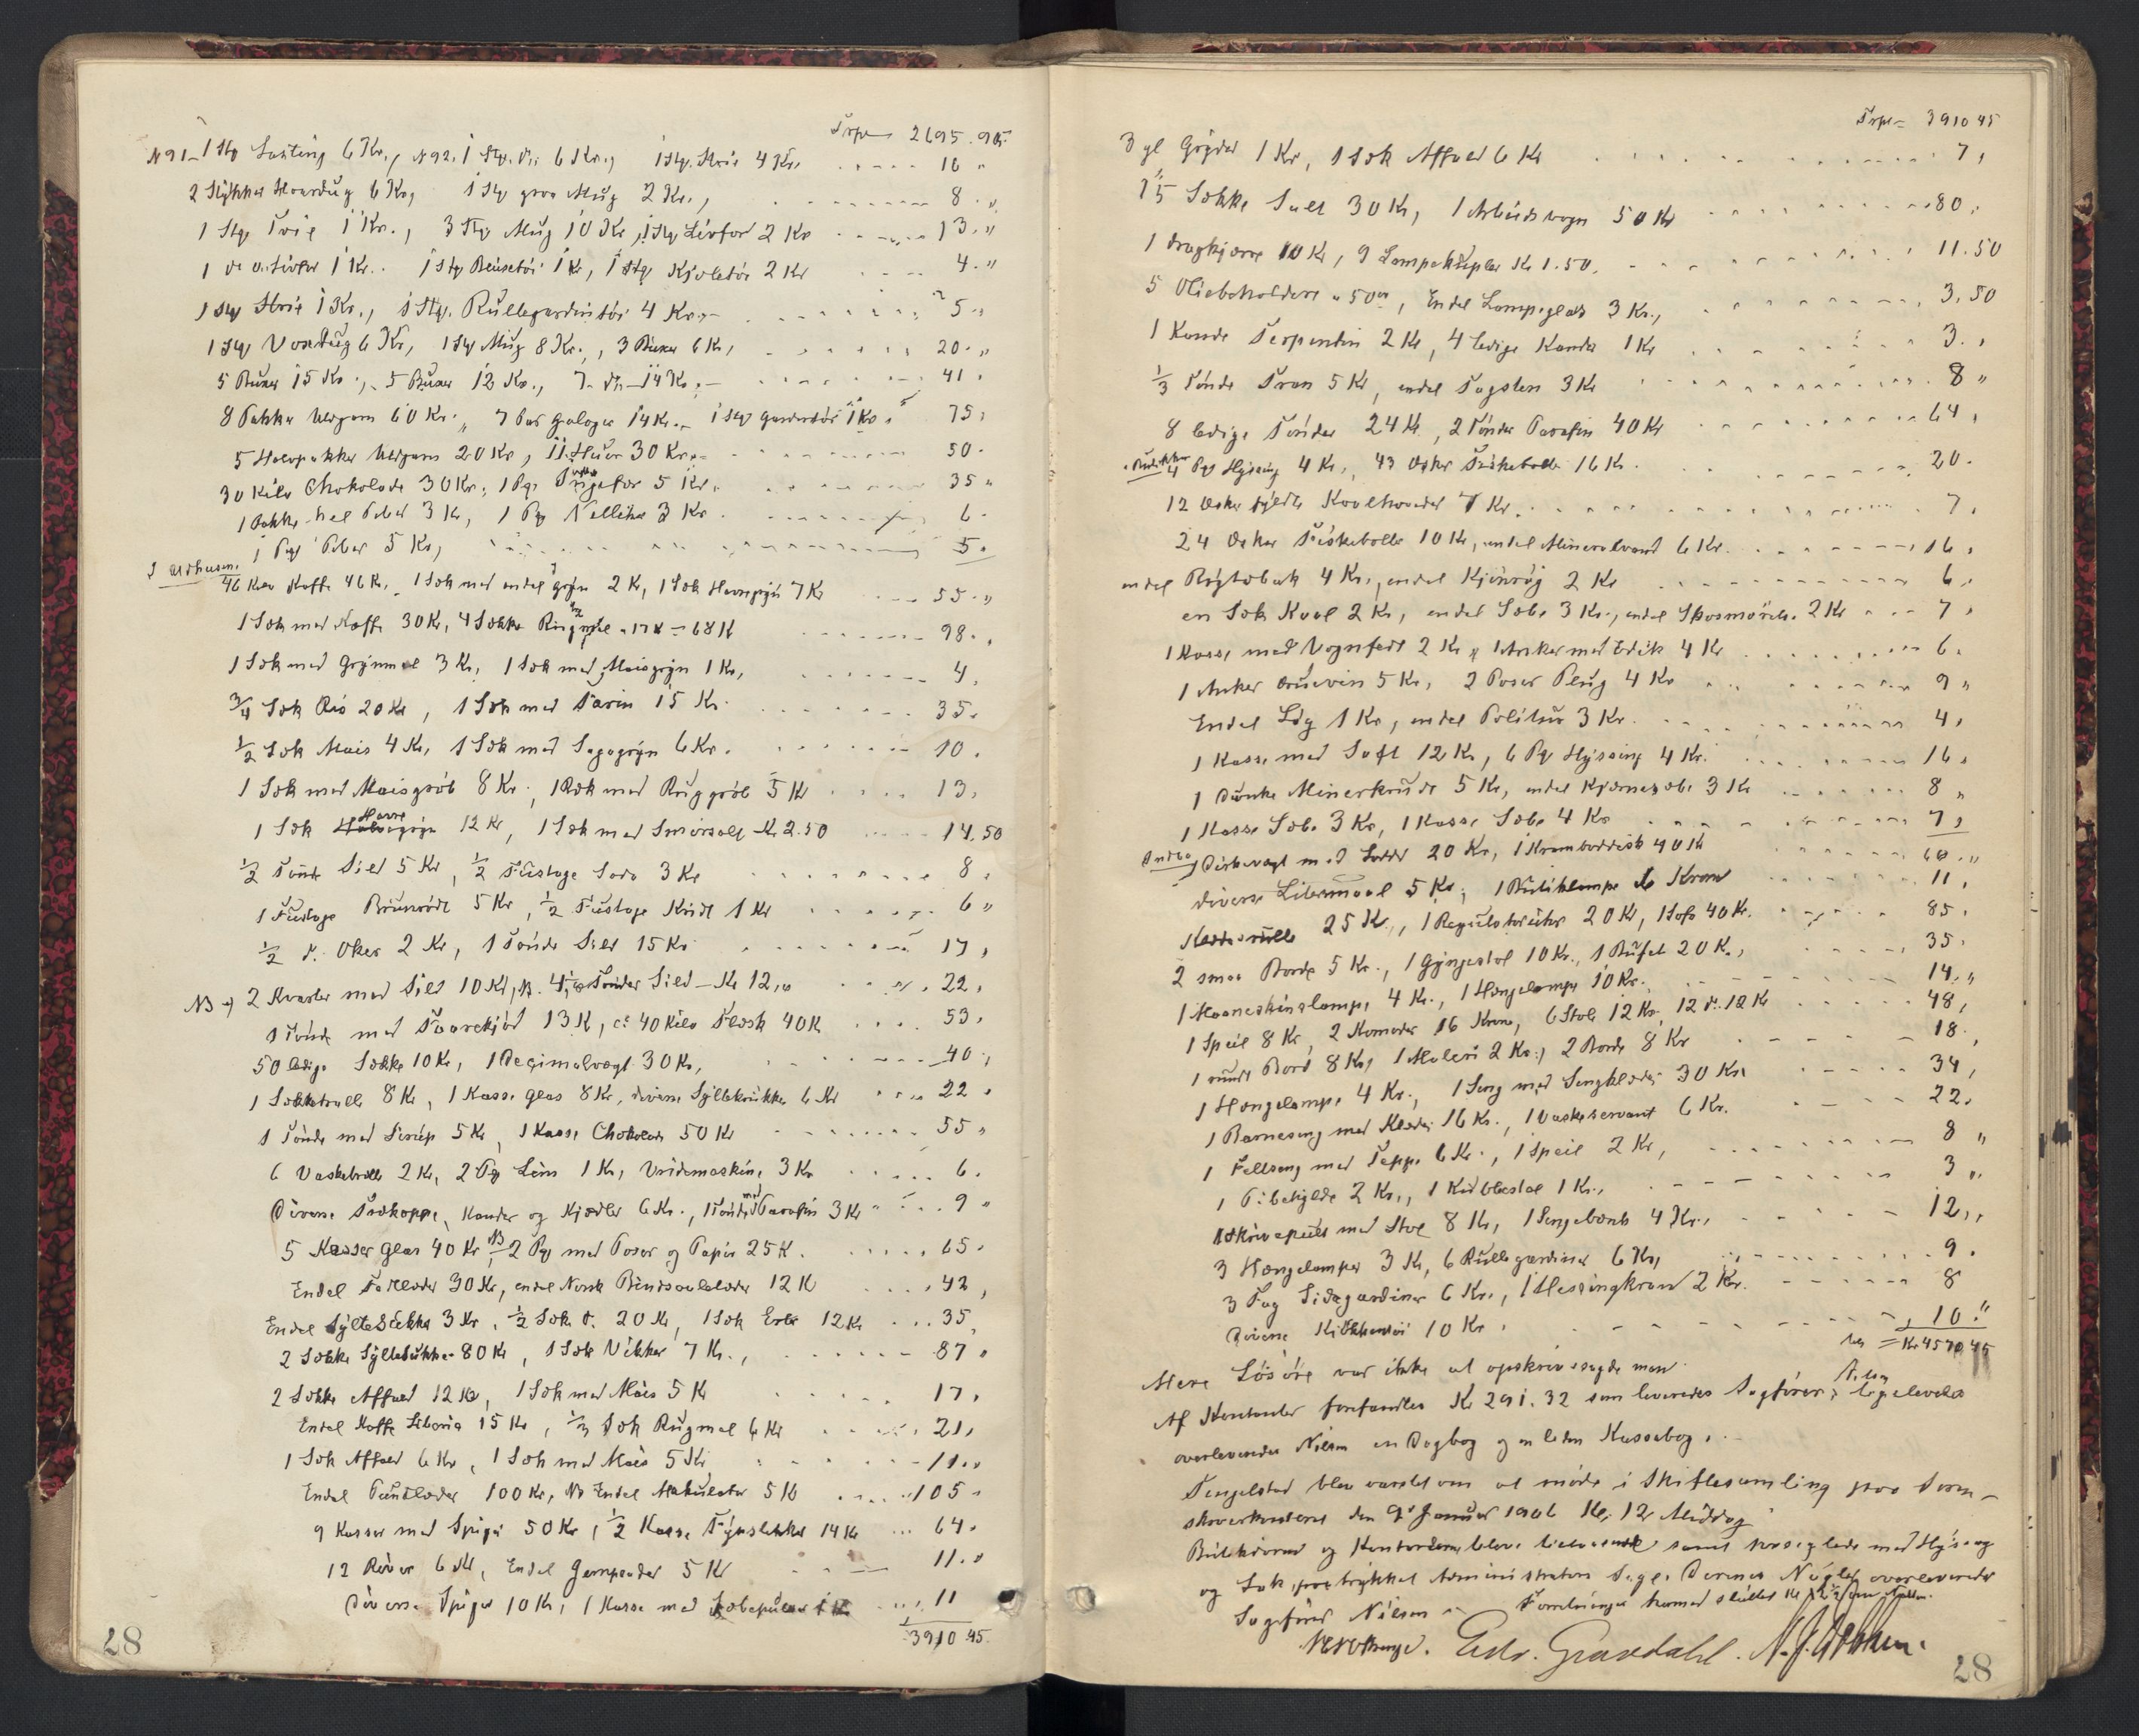 Trpt 2695.95
N 91 - 1 Stk Lasting 6 Kr., N 92. 1 Stk. do. 6 Kr., 1 Stk. Strie 4 Kr. 16 "
2 Stykker Haardug 6 Kr, 1 Stk graa Mug 2 Kr., 8. "
1 Stk. Tvil 1 Kr., 3 Stk Mug 10 Kr, 1 Stk Livfor 2 Kr 13. "
1 do do. Livfor 1 Kr.. 1 Stk Beisetöi 1 Kr, 1 Stk Kjoletöi 2 Kr 4. "
1 Stk Strie 1 Kr., 1 Stk. Rullegardintöi 4 Kr. 5 "
1 Stk Voxdug 6 Kr, 1 Stk Mug 8 Kr., 3 Buxer 6 Kr, 20. "
5 Buxer 15 Kr., 5 Buxer 12 Kr., 7 do 14 Kr. 41.
8 Pakker Uldgarn 60 Kr., 7 Par Galoger 14 Kr. 1 Stk Gardintöi 1 Kr. 75,
5 Halvpakker Uldgarn 20 Kr, 11 Huer 30 Kr. 50.
30 Kilo Chokolade 30 Kr., 1 Pk. Ingefær 5 Kr. 35 "
1 Pakke hel Peber 3 Kr, 1 Pk Nelliker 3 Kr. 6.
1 Pk Peber 5 Kr, 5.
I Udhuset.
46 Kilo Kaffe 46 Kr. 1 Sæk med endel Gryn 2 Kr, 1 Sæk Havregryn 7 Kr 55. "
1 Sæk med Kaffe 30 Kr, 4 Sække Rugmel a 17 Kr = 68 Kr 98. "
1 Sæk med Grynmel 3 Kr, 1 Sæk med Maisgryn 1 Kr, 4,
3/4 Sæk Ris 20 Kr, 1 Sæk med Farin 15 Kr. 35.
1/2 Sæk Mais 4 Kr, 1 Sæk med Sagogryn 6 Kr. 10.
1 Sæk med Maisgröb 8 Kr., 1 Sæk med Ruggröb 5 Kr 13,
1 Sæk Havregryn 12 Kr, 1 Sæk med Smörsalt Kr 2.50 14.50
1/2 Tönde Sild 5 Kr, 1/2 Fustage Soda 3 Kr 8.
1 Fustage Brunrödt 5 Kr, 1/2 Fustage Kridt 1 Kr 6 "
1/2 d. Oker 2 Kr, 1 Tönde Sild 15 Kr 17,
NB 2 Kvarter med Sild 10 Kr, NB. 4 Tönder Sild - Kr 12,00 22,
1 Tönde med Faarekjöd 13 K, ca 40 Kilo Flæsk 40 K 53.
50 ledige Sække 10 Kr, 1 Decimalvægt 30 Kr, 40.,
1 Sækketralle 8 Kr, 1 Kasse Glas 8 Kr, diverse Syltekrukker 6 Kr 22.
1 Tönde med Sirup 5 Kr, 1 Kasse Chokolade 50 Kr 55 "
6 Vaskeballer 2 Kr, 2 Pk Lim 1 Kr, Vridemaskine 3 Kr 6.
Diverse Trækopper, Kander og Kjedler 6 Kr., 1 Tönde med Parafin 3 Kr 9 "
5 Kasser Glas 40 Kr NB 2 Pk med Poser og Papir 25 K. 65.
Endel Fadlæder 30 Kr, endel Norsk Bindsaalelæder 12 K 42,
Endel Syltesukker 3 Kr, 1/2 Sæk d. 20 Kr, 1 Sæk Erter 12 Kr 35,
2 Sække Syltesukker 80 Kr, 1 Sæk Vikker 7 Kr., 87 "
2 Sække Affald 12 Kr, 1 Sæk med Mais 5 Kr 17.
Endel Kaffe Liberia 15 Kr, 1/2 Sæk Rugmel 6 Kr 21,
1 Sæk Affald 6 Kr, 1 Sæk med Mais 5 Kr 11. "
Endel Pundlæder 100 Kr, NB Endel Makulatur 5 Kr 105 "
9 Kasser med Spiger 50 Kr, 1/2 Kasse Fyrstikker 14 Kr 64.
12 River 6 Kr, Endel Jernspader 5 Kr 11. "
Diverse Spiger 10 Kr, 1 Kasse med Sæbepulver 1 Kr 11
3910 45.
28
Trpt = 3910 45
3 gl Gryder 1 Kr, 1 Sæk Affald 6 Kr 7,
15 Sække Salt 30 Kr, 1 Arbeidsvogn 50 Kr 80.
1 Dragkjærre 10 Kr, 9 Lampekupler Kr 1.50. 11.50
5 Oliebeholdere a 50 ør, Endel Lampeglas 3 Kr., 3,50
1 Kande Terpentin 2 Kr, 4 ledige Kander 1 Kr 3.,
1/3 Tönde Tran 5 Kr, endel Tagsten 3 Kr 8 "
8 ledige Tönder 24 Kr, 2 Tönder Parafin 40 Kr 64,
4 Pk Hyssing 4 Kr., 43 Æsker Fiskeboller 16 Kr. 20.
12 Æsker fyldte Kaalhoveder 7 Kr. 7,
24 Æsker Fiskeboller 10 Kr, endel Mineralvand 6 Kr. 16,
endel Rögtobak 4 Kr., endel Kjönrög 2 Kr 6.
en Sæk Kaal 2 Kr, endel Sæbe 3 Kr., endel Skosmörelse 2 Kr 7,
1 Kasse med Vognfedt 2 Kr, 1 Anker med Edik 4 Kr 6.
1 Anker Druevin 5 Kr, 2 Poser Plug 4 Kr 9 "
Endel Läg 1 Kr, endel Politur 3 Kr. 4,
1 Kasse med Saft 12 Kr, 6 Pk Hyssing 4 Kr. 16.
1 Dunke Minerkrudt 5 Kr, endel Kjærnesæbe 3 Kr 8 "
1 Kasse Sæbe 3 Kr, 1 Kasse Sæbe 4 Kr 7,
Diskevægt med Lodder 20 Kr, 1 Kramboddisk 40 Kr 60. "
diverse Litermaal 5 Kr., 1 Butiklampe 6 Kroner 11.
25 Kr., 1 Regulatoruhr 20 Kr, 1 Sofa 40 Kr. 85.
2 smaa Borde 5 Kr., 1 Gyngestol 10 Kr., 1 Bufet 20 K., 35.
1 Maaneskinslampe 4 Kr., 1 Hængelampe 10 Kr., 14. "
1 Speil 8 Kr, 2 Komoder 16 Kroner, 6 Stole 12 Kr, 12 d. 12 Kr 48,
1 rundt Bord 8 Kr, 1 Maleri 2 Kr., 2 Borde 8 Kr 18.
1 Hængelampe 4 Kr., 1 Seng med Sengklæder 30 Kr. 34,
1 Barneseng med Klæder 16 Kr., 1 Vaskeservant 6 Kr. 22.
1 Feltseng med Teppe 6 Kr., 1 Speil 2 Kr, 8 "
1 Pibehylde 2 Kr., 1 Krakkestol 1 Kr., 3 "
1 Skrivepult med Stol 8 Kr, 1 Sengebænk 4 Kr., 12,,
3 Hængelamper 3 Kr, 6 Rullegardiner 6 Kr, 9.
3 Fag Sidegardiner 6 Kr., 1 Messingkran 2 Kr. 8
Diverse Kjökkentöi 10 Kr. 10. "
= Kr 4570 45
Mere Lösöre var ikke at opskrive sagde man.
Af Kontanter forefandtes Kr 291.32 som leveredes Sagförer Nilsen ligeledes
overleveredes Nilsen en Dagbog og en liden Kassebog.
Tengelstad blev varslet om at möde i Skiftesamling paa Soren-
skriverkontoret den 9de Januar 1906 Kl. 12 Middag
Butikdören og Kontordören blev tillaaset samt forseglede med Hyssing
og Lak paatrykket Administrators Segl. Dörenes Nögler overleveredes
Sagförer Nilsen - Forretningen hermed sluttet Kl
Edv. Grasdahl.
28